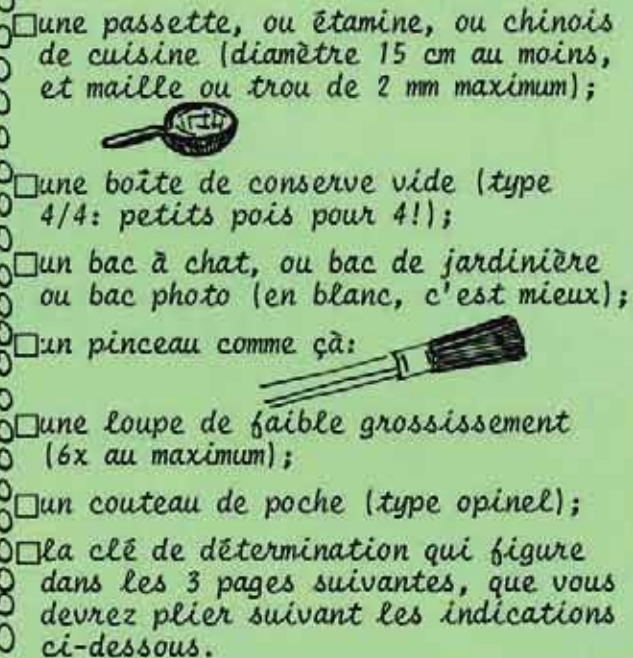 □une passette, ou étamine, ou chinois
de cuisine (diamètre 15 cm au moins,
et maille ou trou de 2 mm maximum);
□une boîte de conserve vide (type
4/4: petits pois pour 4!);
□un bac à chat, ou bac de jardinière
ou bac photo (en blanc, c'est mieux);
□un pinceau comme çà:
□une loupe de faible grossissement
(6x au maximum);
□un couteau de poche (type opinel);
□la clé de détermination qui figure
dans les 3 pages suivantes, que vous
devrez plier suivant les indications
ci-dessous.